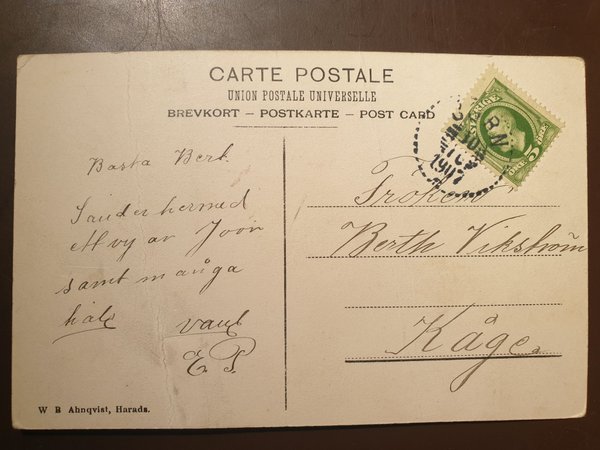 CARTE POSTALE
UNION POSTALE UNIVERSELLE
BREVKORT – POSTKARTE – POST CARD
Basta Bert.
Sänder hermed
ett vy av Joor
samt många
häls vänl
E. P.
Fröken
Berth Vikström
Kåge.
1907
W B Ahnqvist, Harads.